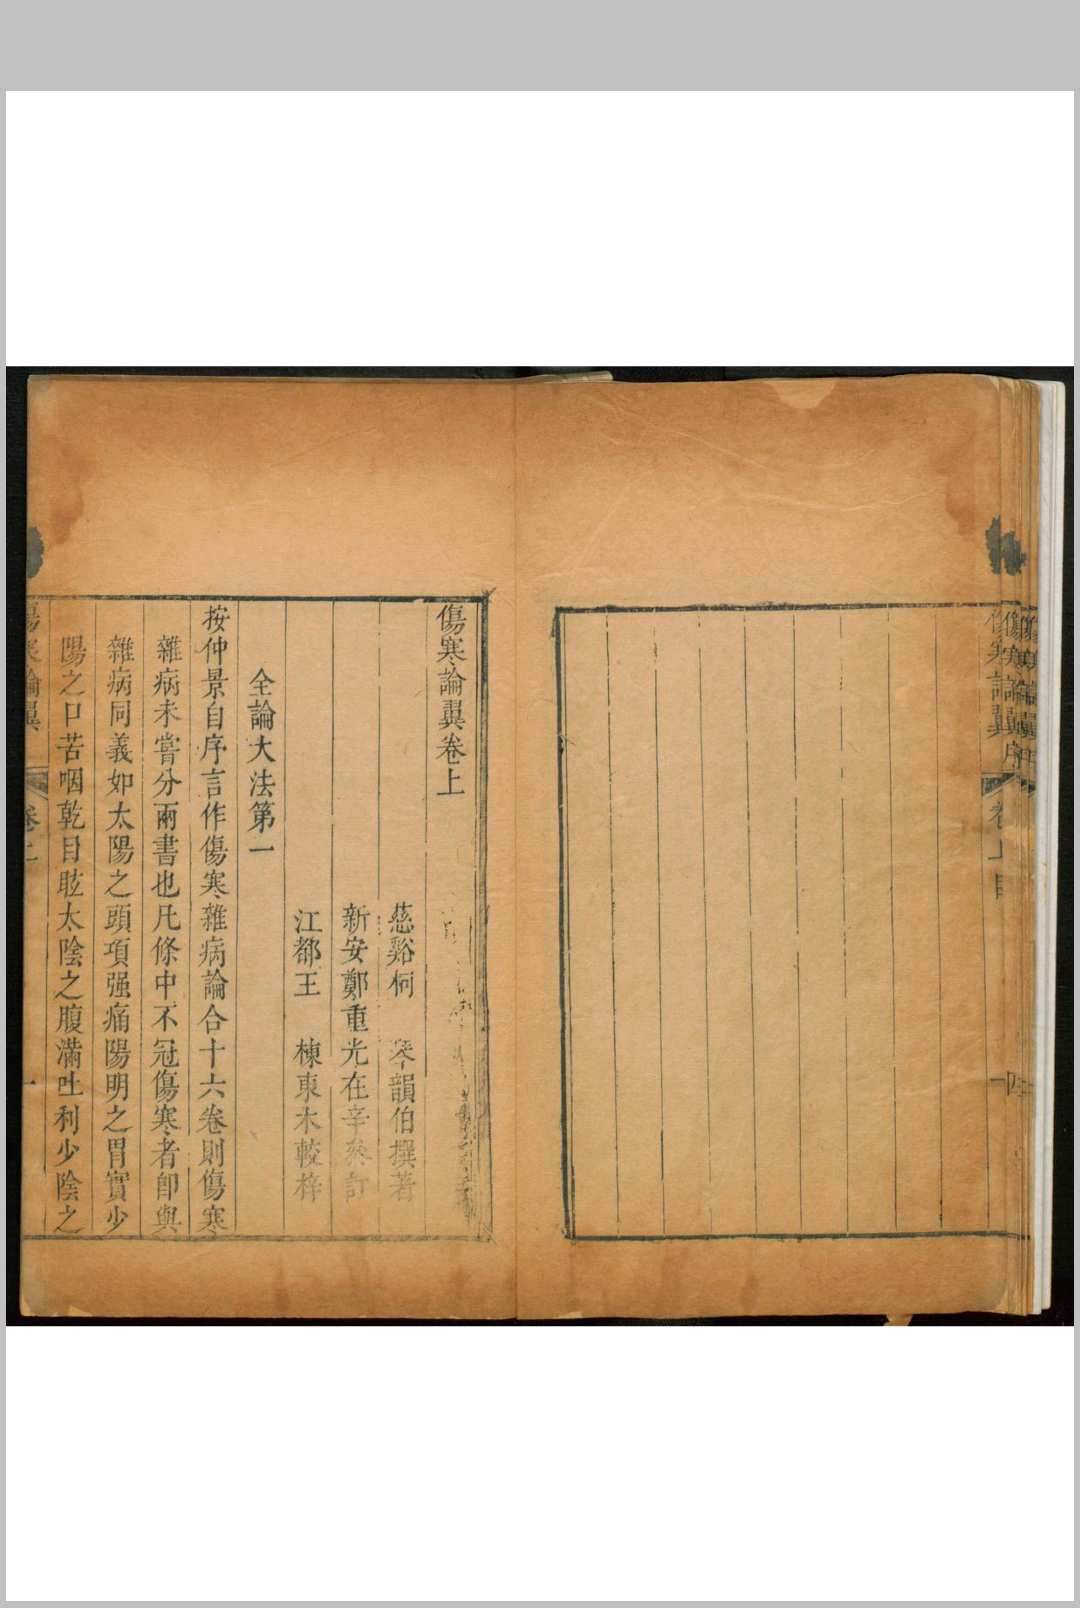 傷寒論翼序
傷寒論翼
卷上目
四
傷寒論翼卷上
慈谿柯 琴韻伯撰著
新安鄭重光在辛叅訂
江都王 棟東木較梓
全論大法第一
按仲景自序言作傷寒雜病論合十六卷則傷寒
雜病未嘗分兩書也凡條中不冠傷寒者卽與
雜病同義如太陽之頭項强痛陽明之胃實少
陽之口苦咽乾目眩太陰之腹滿吐利少陰之
傷寒論翼
卷上
一